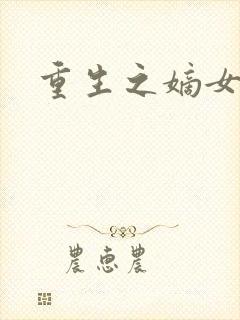 重生之嫡女
農惠農